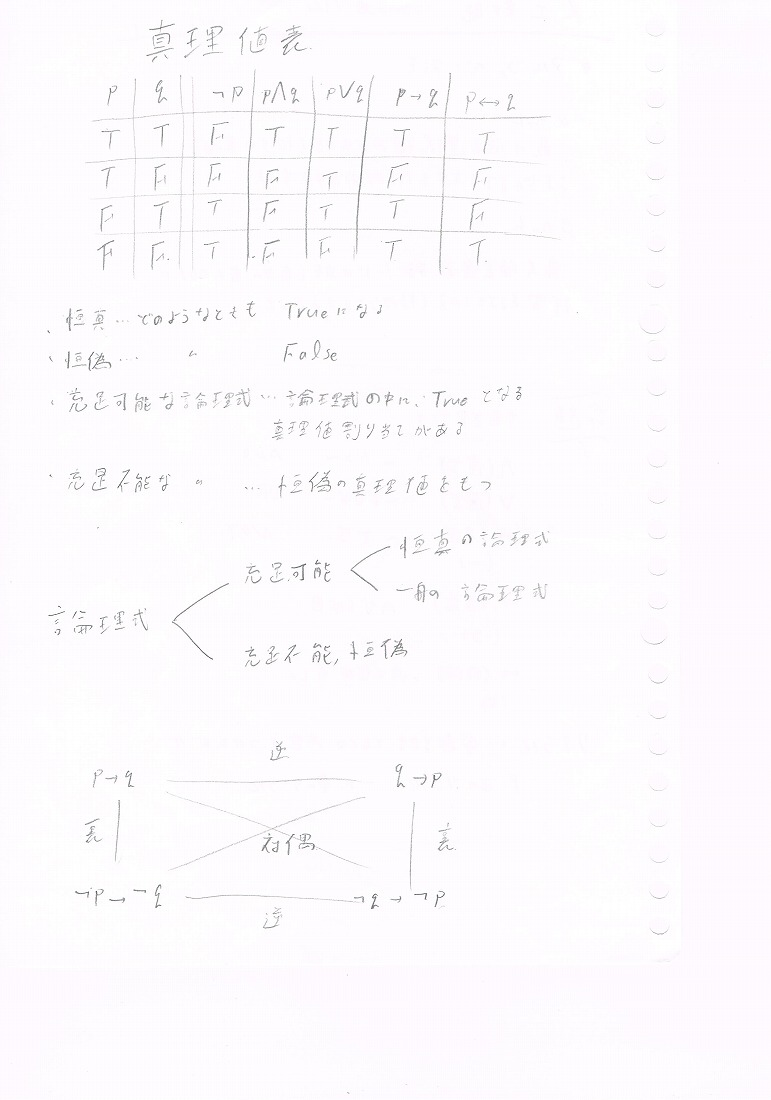 真理値表
p q ¬p p∧q p∨q p→q p↔q
T T F T T T T
T F F F T F F
F T T F T T F
F F T F F T T
・恒真…どのようなときも Trueになる
・恒偽… 〃 False
・充足可能な論理式…論理式の中に、Trueとなる
真理値割り当てがある
・充足不能な 〃 …恒偽の真理値をもつ
恒真の論理式
充足可能
一般の論理式
論理式
充足不能, 恒偽
逆
p→q q→p
裏 対偶 裏
¬p→¬q ¬q→¬p
逆